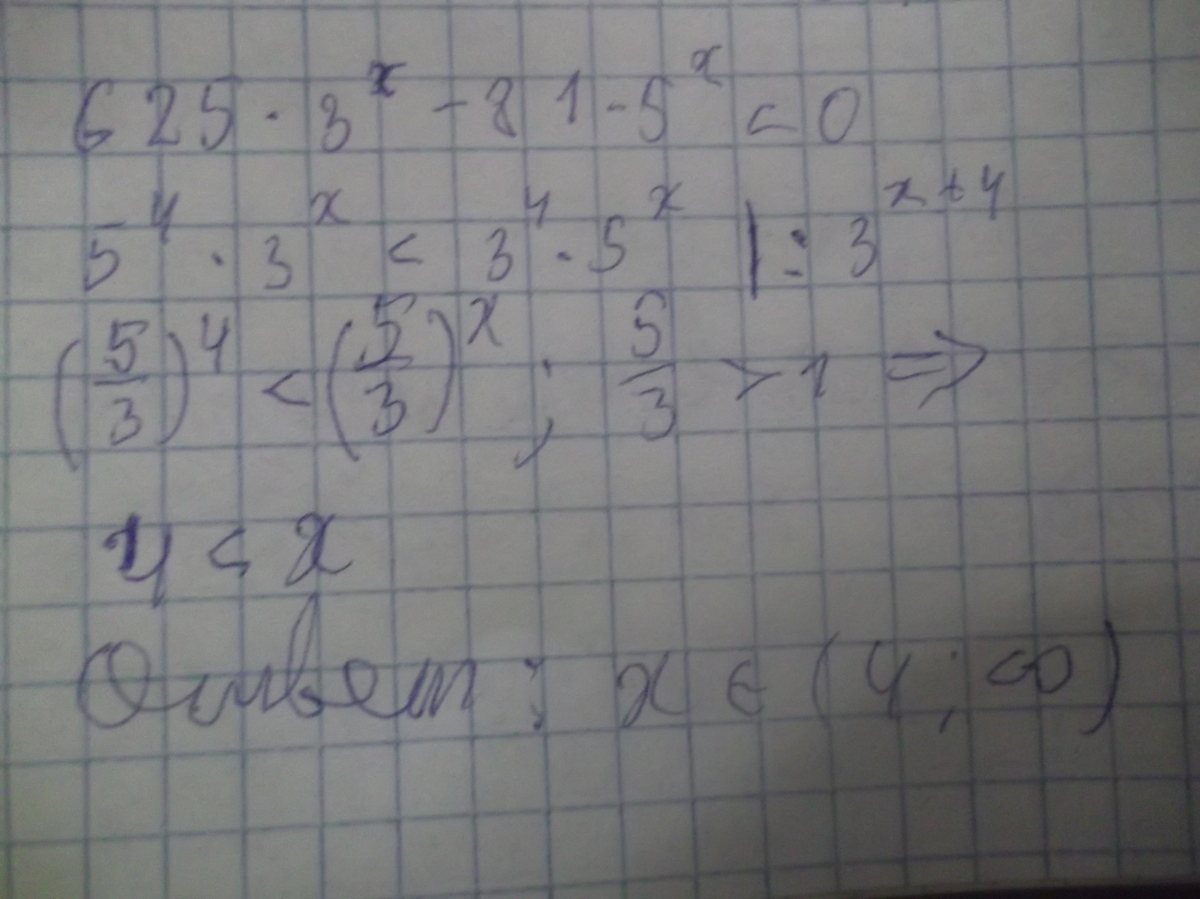 625 · 3^x - 81 · 5^x < 0
5^4 · 3^x < 3^4 · 5^x | : 3^(x+4)
(5/3)^4 < (5/3)^x ; 5/3 > 1 ⇒
4 < x
Ответ: x ∈ (4; ∞)